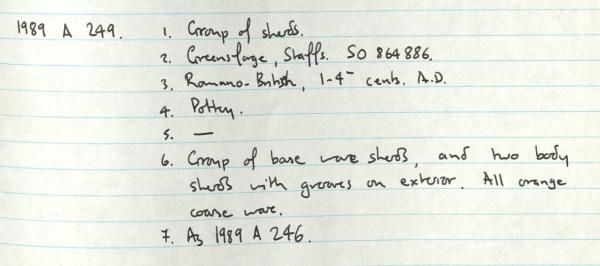 1989 A 249. 1. Group of sherds.
2. Greensforge, Staffs. SO 864886.
3. Romano-British, 1-4 cents. A.D.
4. Pottery.
5. —
6. Group of base ware sherds, and two body
sherds with grooves on exterior. All orange
coarse ware.
7. As 1989 A 246.